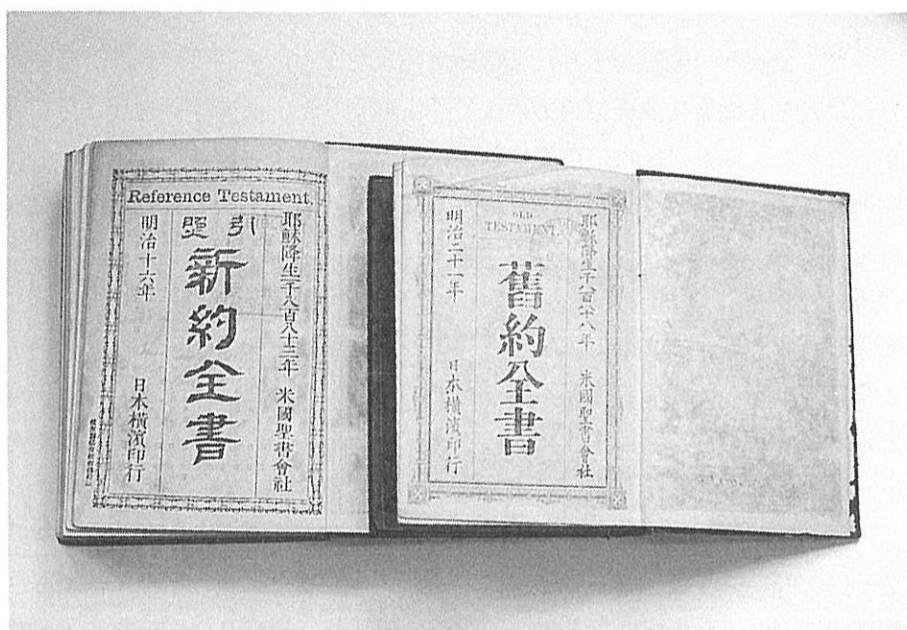 Reference Testament.
耶穌降生一千八百八十三年 米國聖書會社
引照
新約全書
明治十六年 日本橫濱印行
OLD
TESTAMENT
耶穌降生一千八百八十八年 米國聖書會社
舊約全書
明治二十一年 日本橫濱印行